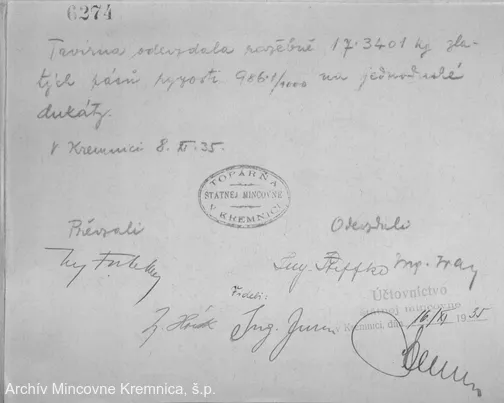 6274
Tavírna odevzdala ražebně 17·3401 kg zla-
tých pásů ryzosti 986·1/1000 na jednoduché
dukáty.
V Kremnici 8. XI. 35.
TOPÁRŇA
ŠTÁTNEJ MINCOVNE
V KREMNICI
Převzali
Odevzdali
Ing.
Ing. Ing.
Videli:
Ing.
Účtovníctvo
štátnej mincovne
v Kremnici, dňa 16/XI 1935
Archív Mincovne Kremnica, š.p.